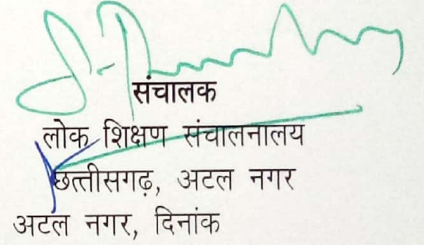 संचालक
लोक शिक्षण संचालनालय
छत्तीसगढ़, अटल नगर
अटल नगर, दिनांक